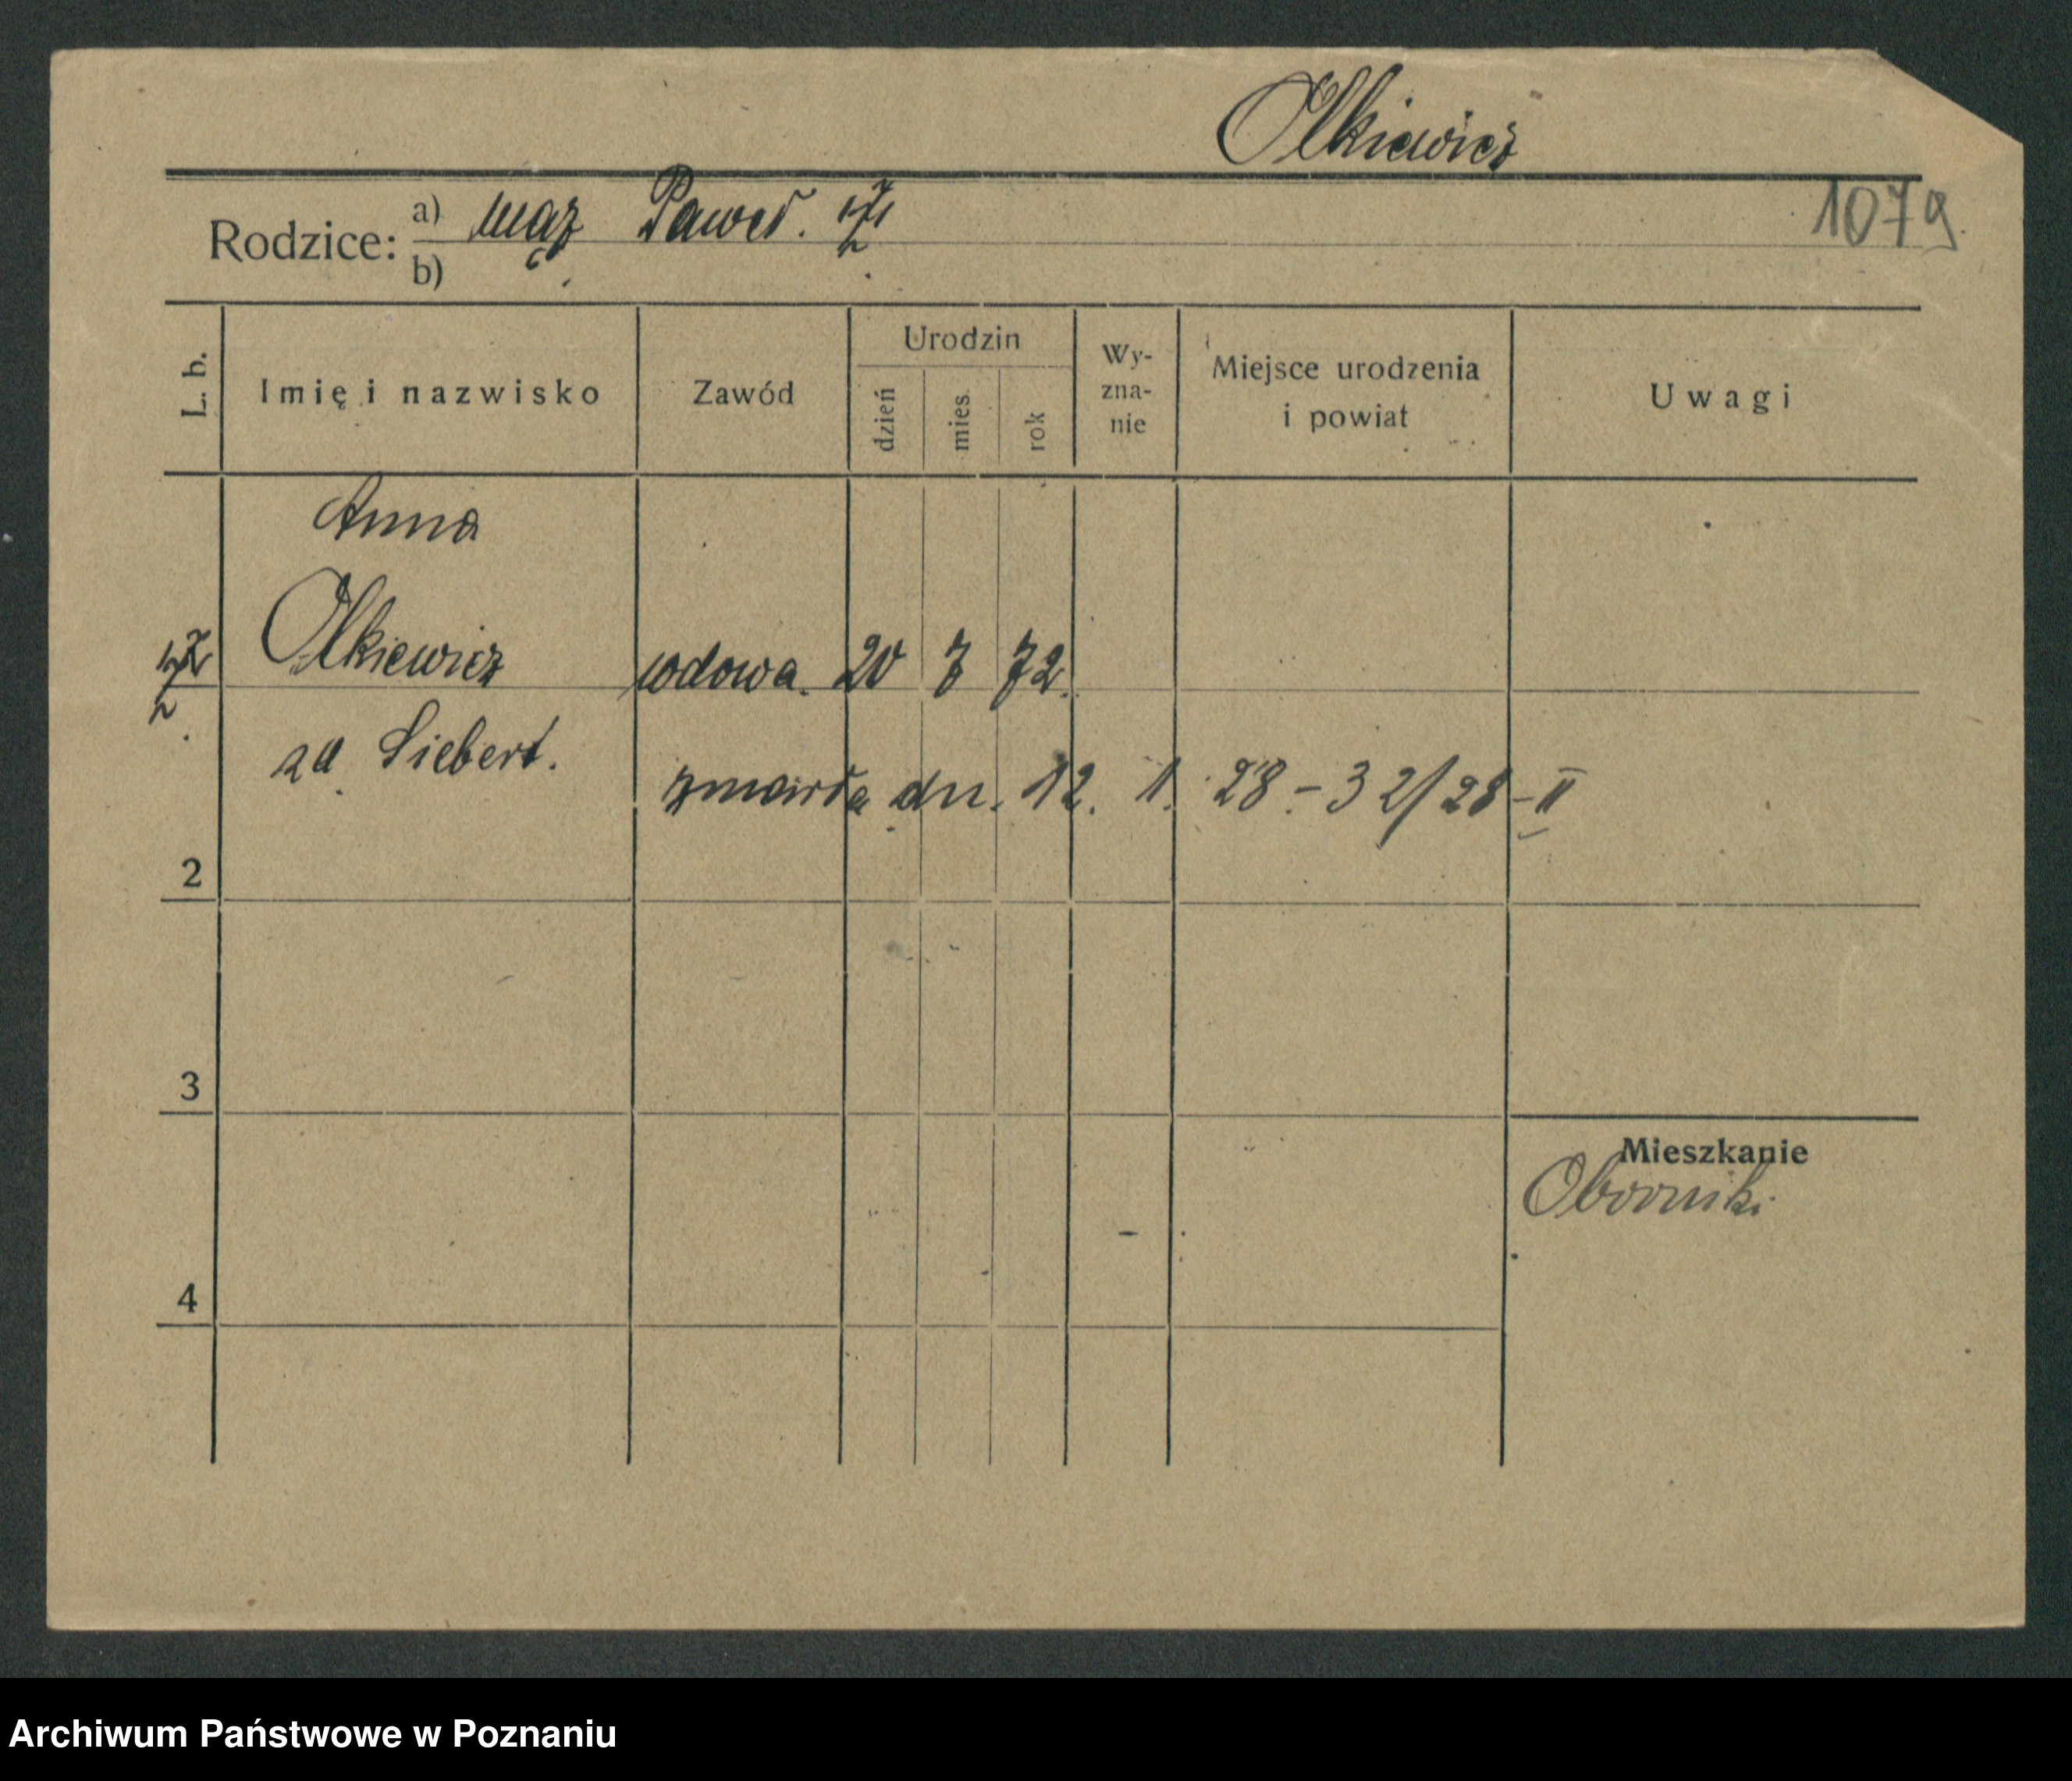 Olkiewicz
1079.
Rodzice: a) mąż Paweł.
b)
L. b. Imię i nazwisko Zawód Urodzin dzień mies. rok Wy-zna-nie Miejsce urodzenia i powiat Uwagi
Anna
Olkiewicz wdowa. 20 7 72.
zd Siebert.
zmarła dn. 12. 1. 28 - 32/28 - II
2
3
Mieszkanie
Oborniki
4
Archiwum Państwowe w Poznaniu